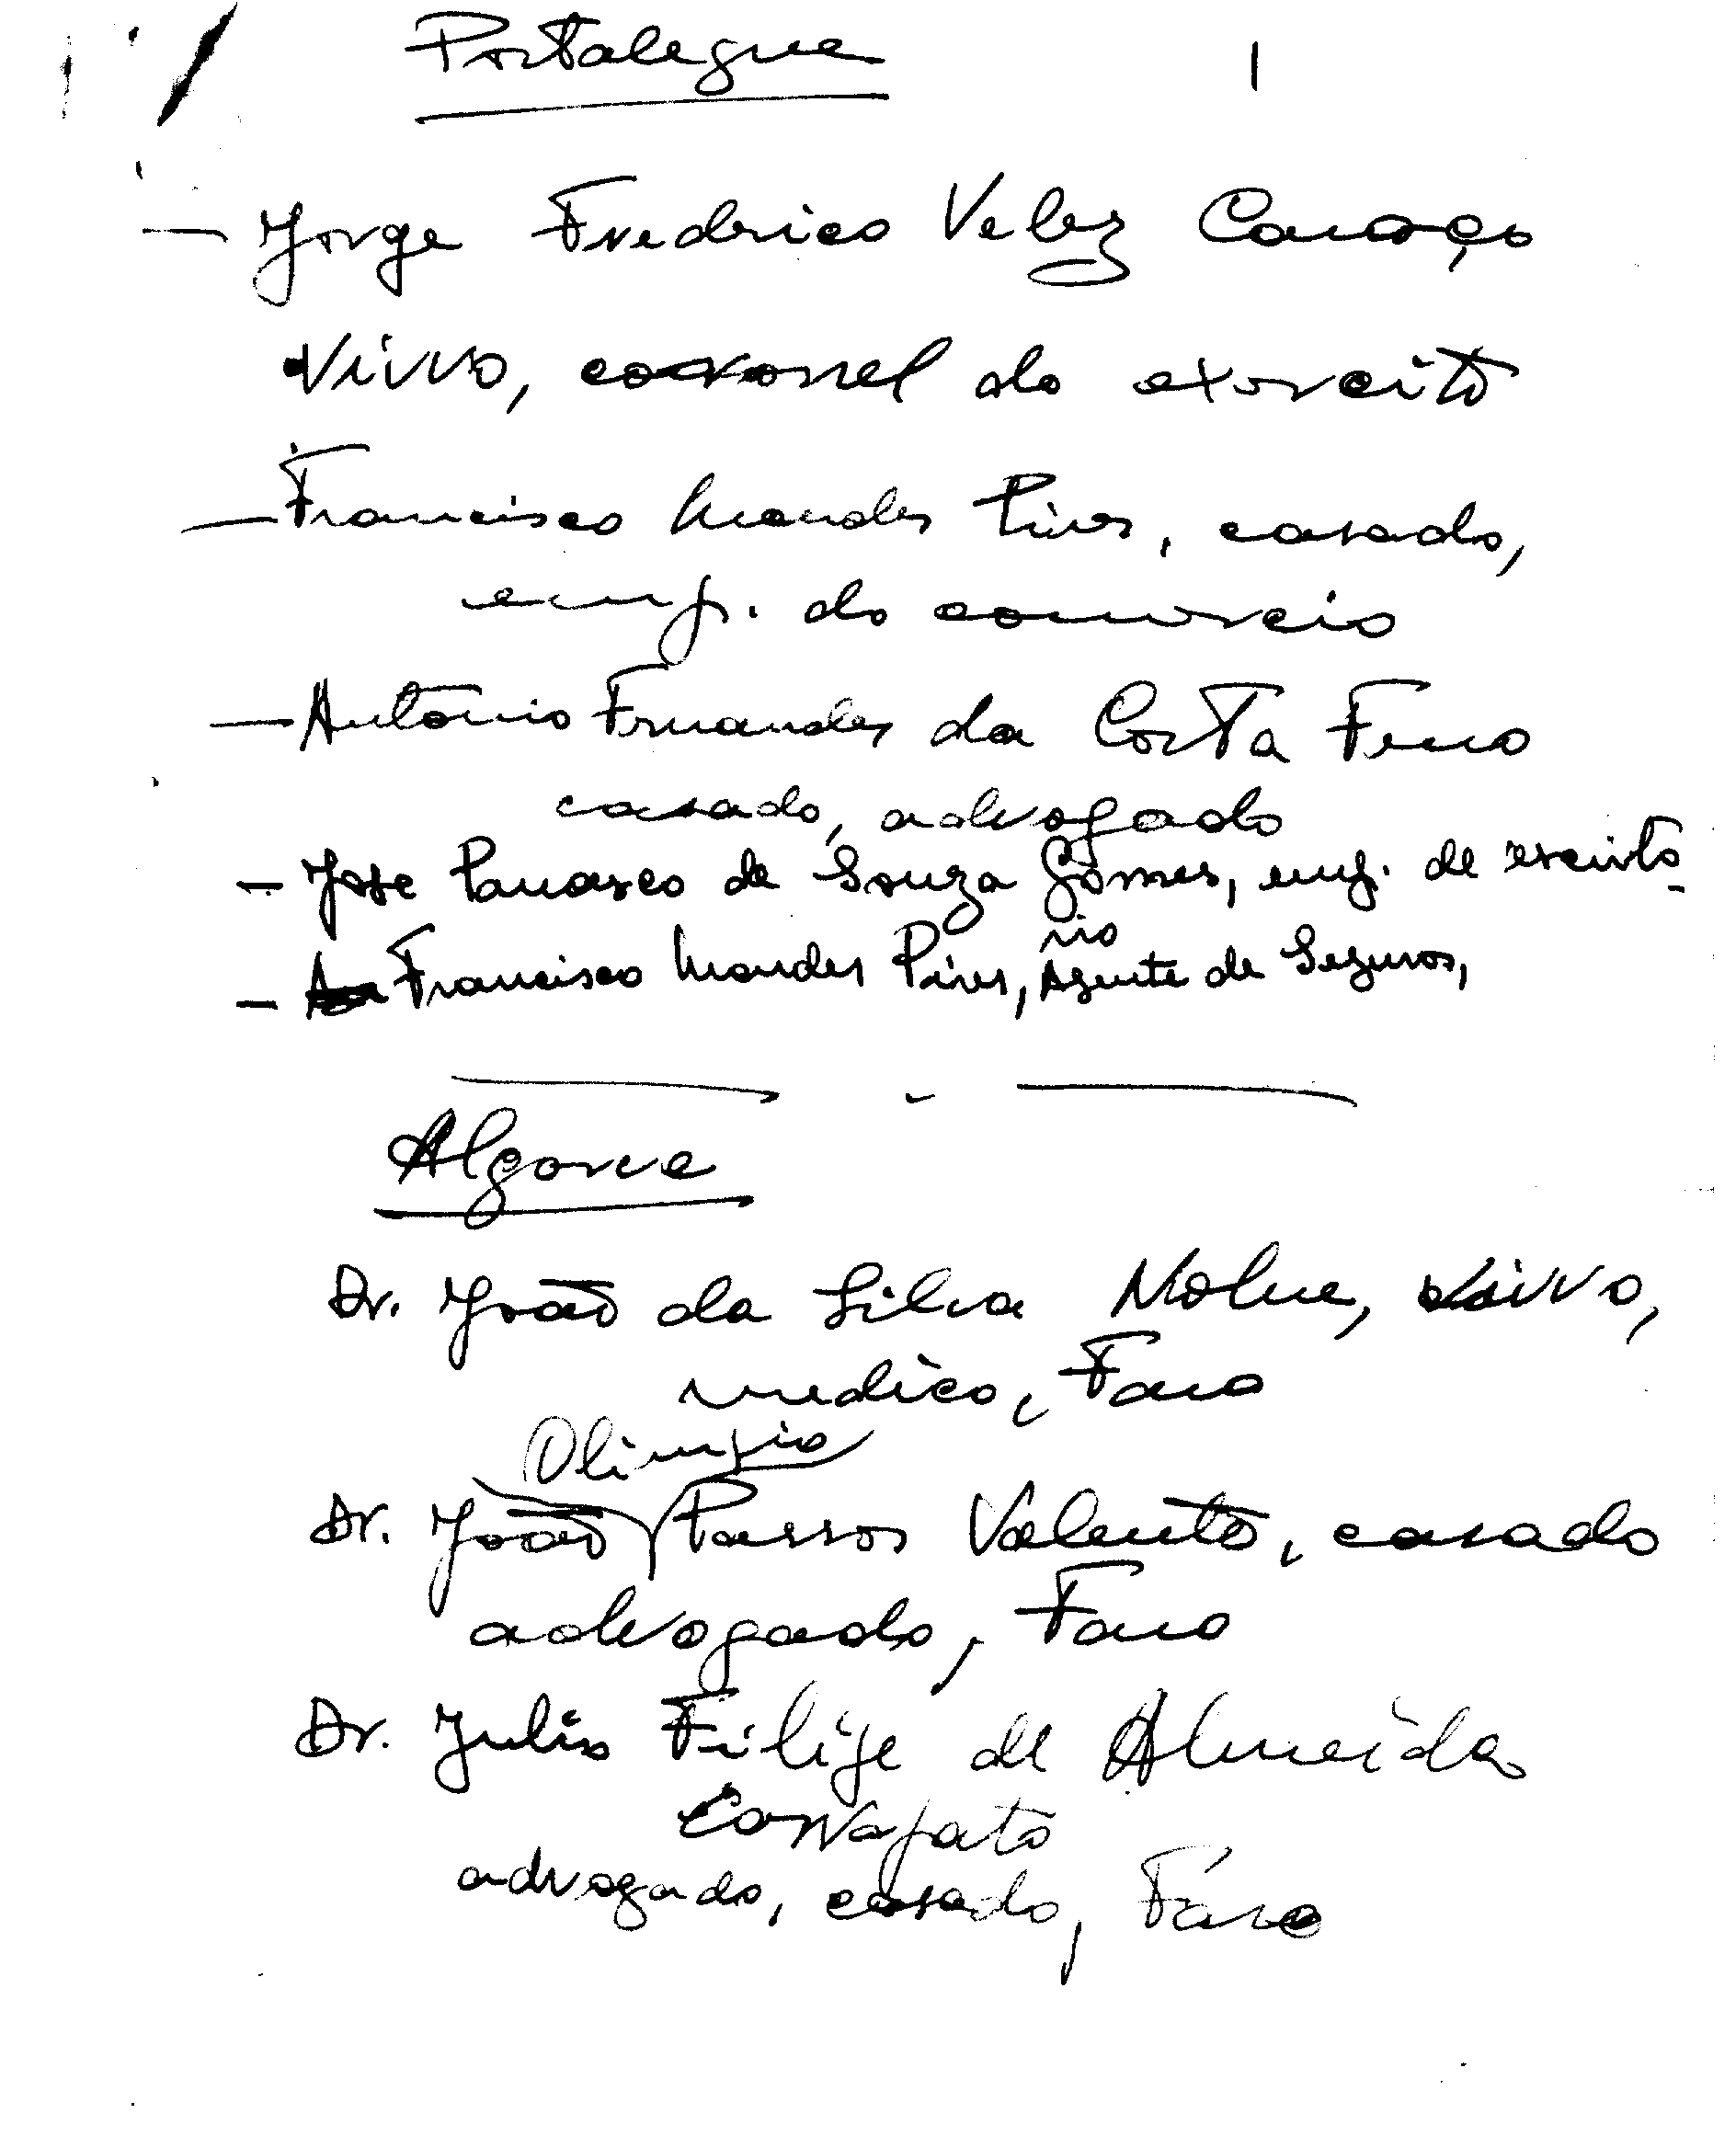 Portalegre
1
- Jorge Frederico Velez Caroço
Viuvo, coronel do exercito
- Francisco Mendes Pires, casado,
emp. do comercio
- António Fernandes da Costa Ferro
casado, advogado
- Jose Panasco de Souza Gomes, emp. de escrito-
rio
- Francisco Mendes Pires, Agente de Seguros,
Algarve
Dr. João da Silva Nobre, viuvo,
medico, Faro
Olimpio
Dr. João Passos Valente, casado
advogado, Faro
Dr. Julio Filipe de Almeida
Carrapato
advogado, casado, Faro